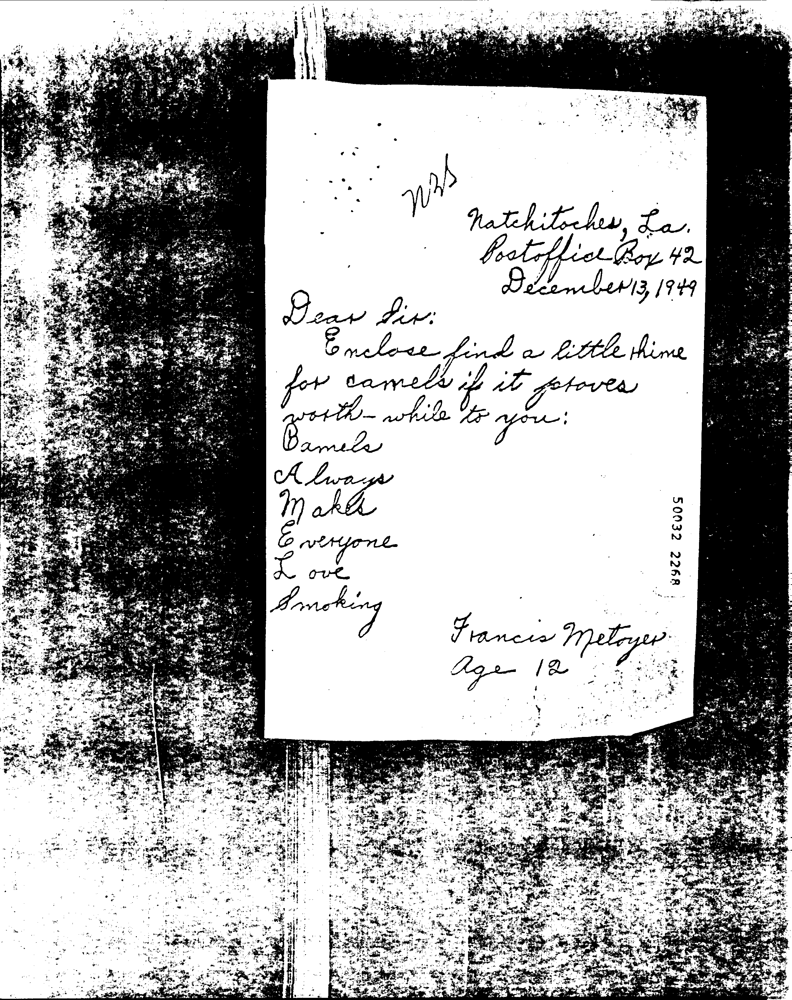 Natchitoches, La.
Postoffice Box 42
December 13, 1949
Dear Sir:
Enclose find a little rhime
for camels if it proves
worth-while to you:
Camels
Always
Makes
Everyone
Love
Smoking
Francis Metoyer
Age 12
50032 2268